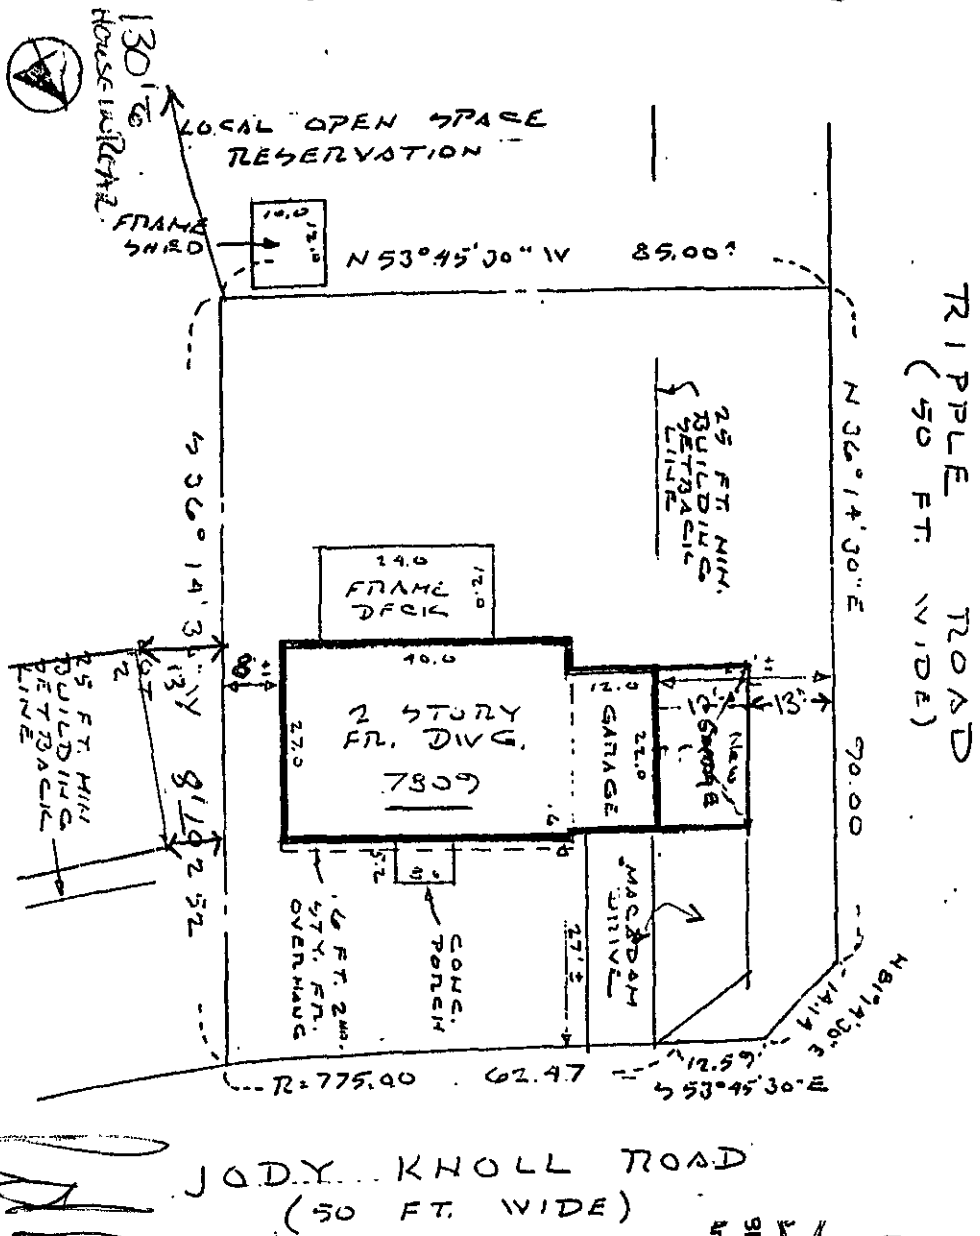 130'
House in Rear.
LOCAL OPEN SPACE
RESERVATION
FRAME
SHED
10.0
12.0
N 53°45'30" W 85.00'
RIPPLE ROAD
(50 FT. WIDE)
N 36°14'30" E 90.00
25 FT. MIN.
BUILDING
SETBACK
LINE
24.0
12.0
FRAME
DECK
40.0
27.0
2 STORY
FR. DWG.
7809
12.0
22.0
GARAGE
12'
13'
New
GARAGE
8
LOT
2
25 FT. MIN
BUILDING
SETBACK
LINE
5.2
.6
.6 FT. 2ND.
STY. FR.
OVERHANG
CONC.
PORCH
27'±
MACADAM
DRIVE
R=775.00 62.47
12.59
S 53°45'30" E
14.14
N 81°14'30" E
JODY KNOLL ROAD
(50 FT. WIDE)